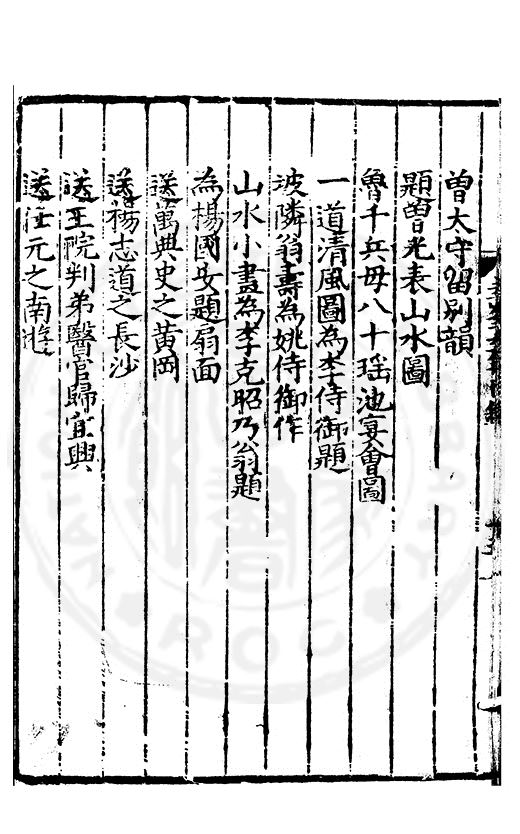 曾太守留別韻
題曾光表山水圖
魯千兵母八十瑤池宴會圖
一道清風圖為李侍御題
波隣翁壽為姚侍御作
山水小畫為李克昭乃翁題
為楊國安題扇面
送萬典史之黃岡
送楊志道之長沙
送王院判弟醫官歸宜興
送汪元之南遊